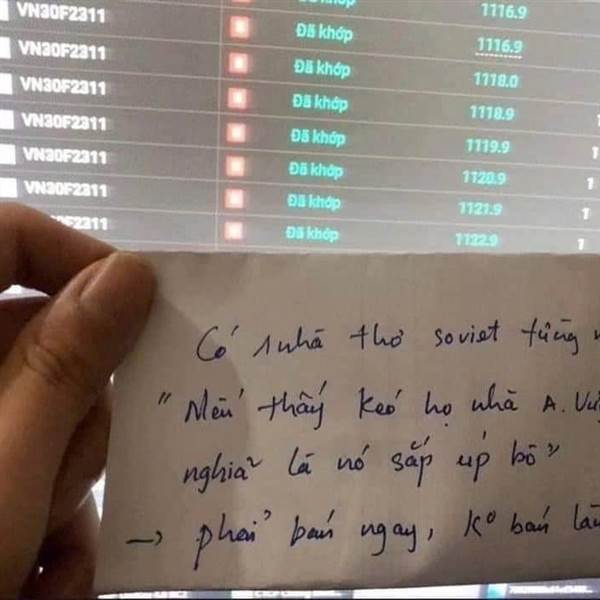 VN30F2311 Đã khớp 1116.9
VN30F2311 Đã khớp 1116.9
VN30F2311 Đã khớp 1118.0
VN30F2311 Đã khớp 1118.9
VN30F2311 Đã khớp 1119.9 1
VN30F2311 Đã khớp 1120.9 1
Đã khớp 1121.9 1
Đã khớp 1122.9 1
Có 1 nhà thơ soviet từng
" Nếu thấy kéo họ nhà A.
nghĩa là nó sắp úp bô "
→ phải bán ngay, ko bán